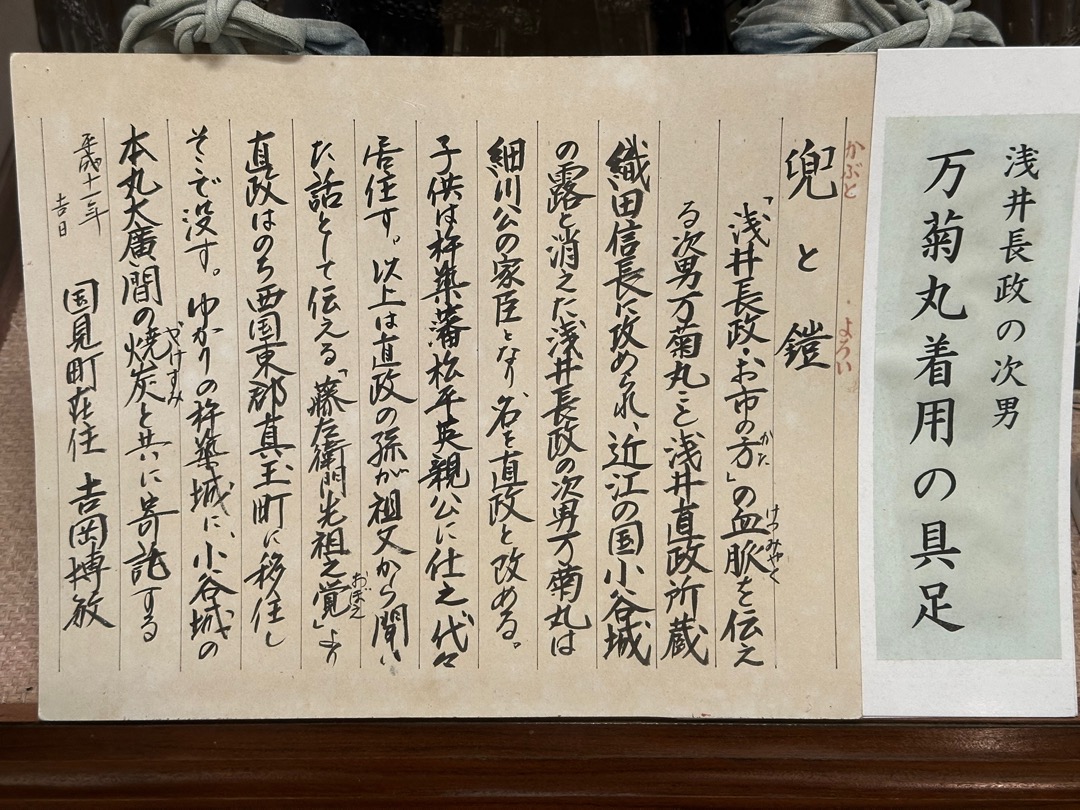 浅井長政の次男
万菊丸着用の具足
兜と鎧
かぶと
よろい
「浅井長政・お市の方」の血脈を伝え
かた
けつみゃく
る次男万菊丸こと浅井直政所蔵
織田信長に攻められ、近江の国小谷城
の露と消えた浅井長政の次男万菊丸は
細川公の家臣となり名を直政と改める。
子供は杵築藩松平英親公に仕え代々
居住す。以上は直政の孫が祖父から聞い
た話として伝える「藤左衛門先祖之覚」より
おぼえ
直政はのち西国東郡真玉町に移住し
そこで没す。ゆかりの杵築城に、小谷城の
本丸大廣間の焼炭と共に寄託する
やけすみ
平成十一年
吉日
国見町在住 吉岡博敏